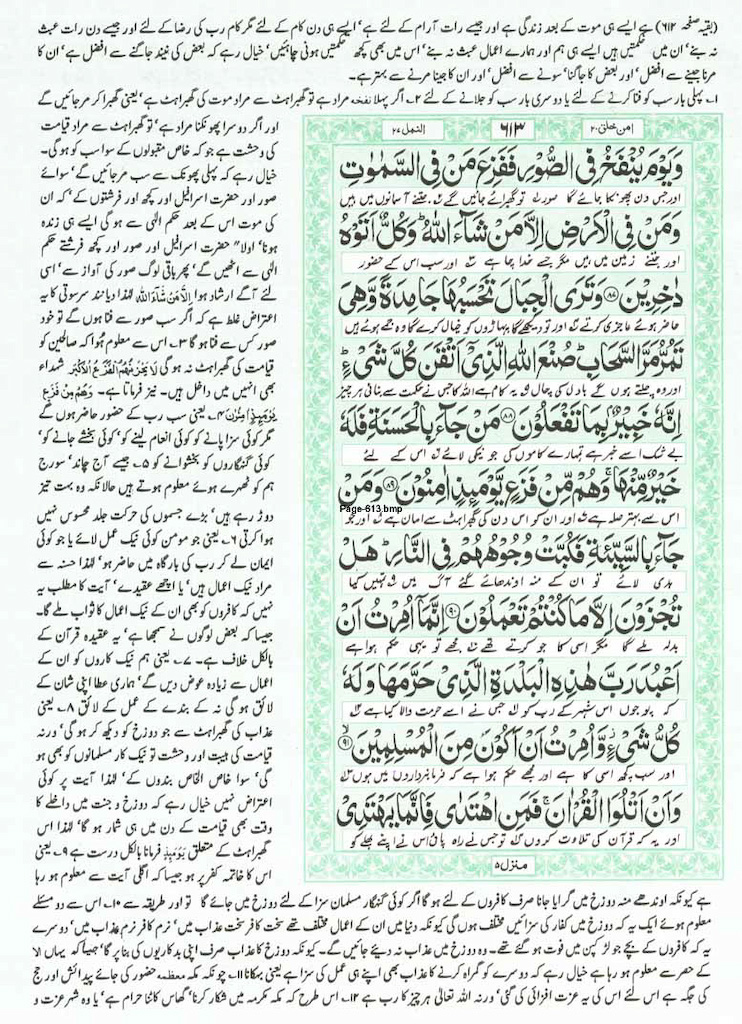 (بقیہ صفحہ ۶۱۲) ہے ایسے ہی موت کے بعد زندگی ہے اور جیسے رات آرام کے لئے ہے' ایسے ہی دن کام کے لئے مگر کام رب کی رضا کے لئے اور جیسے دن رات عبث
نہ بنے' ان میں حکمتیں ہیں ایسے ہی ہم اور ہمارے اعمال عبث نہ بنے' اس میں بھی کچھ حکمتیں ہونی چاہئیں' خیال رہے کہ بعض کی نیند جاگنے سے افضل ہے' ان کا
مرنا جینے سے افضل' اور بعض کا جاگنا' سونے سے افضل' اور ان کا جینا مرنے سے بہتر ہے۔
۱۔ پہلی بار سب کو فنا کرنے کے لئے یا دوسری بار سب کو جلانے کے لئے ۲۔ اگر پہلا نفخہ مراد ہے تو گھبراہٹ سے مراد موت کی گھبراہٹ ہے' یعنی گھبرا کر مر جائیں گے
امن خلق ۲۰
۶۱۳
النمل ۲۷
وَيَوْمَ يُنْفَخُ فِي الصُّوْرِ فَفَزِعَ مَنْ فِي السَّمٰوٰتِ
اور جس دن پھونکا جائے گا صور تو گھبرائے جائیں گے جتنے آسمانوں میں ہیں
وَمَنْ فِي الْاَرْضِ اِلَّا مَنْ شَآءَ اللّٰهُ ؕ وَكُلٌّ اَتَوْهُ
اور جتنے زمین میں ہیں مگر جسے خدا چاہے اور سب اس کے حضور
دٰخِرِيْنَ ۝۸۷ وَتَرَى الْجِبَالَ تَحْسَبُهَا جَامِدَةً وَّهِيَ
حاضر ہوئے عاجزی کرتے اور تو دیکھے گا پہاڑوں کو خیال کرے گا کہ وہ جمے ہوئے ہیں
تَمُرُّ مَرَّ السَّحَابِ ؕ صُنْعَ اللّٰهِ الَّذِيْٓ اَتْقَنَ كُلَّ شَيْءٍ ؕ
اور وہ چلتے ہوں گے بادل کی چال یہ کام ہے اللہ کا جس نے حکمت سے بنائی ہر چیز
اِنَّهٗ خَبِيْرٌۢ بِمَا تَفْعَلُوْنَ ۝۸۸ مَنْ جَآءَ بِالْحَسَنَةِ فَلَهٗ
بے شک اسے خبر ہے تمہارے کاموں کی جو نیکی لائے اس کے لئے
خَيْرٌ مِّنْهَا ۚ وَهُمْ مِّنْ فَزَعٍ يَّوْمَئِذٍ اٰمِنُوْنَ ۝۸۹ وَمَنْ
Page-613.bmp
اس سے بہتر صلہ ہے اور ان کو اس دن کی گھبراہٹ سے امان ہے اور جو
جَآءَ بِالسَّيِّئَةِ فَكُبَّتْ وُجُوْهُهُمْ فِي النَّارِ ؕ هَلْ
بدی لائے تو ان کے منہ اوندھائے گئے آگ میں تمہیں کیا
تُجْزَوْنَ اِلَّا مَا كُنْتُمْ تَعْمَلُوْنَ ۝۹۰ اِنَّمَآ اُمِرْتُ اَنْ
بدلہ ملے گا مگر اسی کا جو کرتے تھے مجھے تو یہی حکم ہوا ہے
اَعْبُدَ رَبَّ هٰذِهِ الْبَلْدَةِ الَّذِيْ حَرَّمَهَا وَلَهٗ
کہ پوجوں اس شہر کے رب کو جس نے اسے حرمت والا کیا ہے
كُلُّ شَيْءٍ ؗ وَّاُمِرْتُ اَنْ اَكُوْنَ مِنَ الْمُسْلِمِيْنَ ۝۹۱
اور سب کچھ اسی کا ہے اور مجھے حکم ہوا ہے کہ فرمانبرداروں میں ہوں
وَاَنْ اَتْلُوَا الْقُرْاٰنَ ۚ فَمَنِ اهْتَدٰى فَاِنَّمَا يَهْتَدِيْ
اور یہ کہ قرآن کی تلاوت کروں تو جس نے راہ پائی اس نے اپنے بھلے کو
منزل ۵
اور اگر دوسرا پھونکنا مراد ہے' تو گھبراہٹ سے مراد قیامت
کی وحشت ہے جو کہ خاص مقبولوں کے سوا سب کو ہو گی۔
خیال رہے کہ پہلی پھونک سے سب مر جائیں گے' سوائے
صور اور حضرت اسرافیل اور کچھ اور فرشتوں کے' کہ ان
کی موت اس کے بعد حکم الٰہی سے ہو گی ایسے ہی زندہ
ہونا' اولاً" حضرت اسرافیل اور صور اور کچھ فرشتے حکم
الٰہی سے اٹھیں گے' پھر باقی لوگ صور کی آواز سے' اسی
لئے آگے ارشاد ہوا اِلَّا مَنْ شَآءَ اللّٰهُ لہٰذا دیانند سرسوتی کا یہ
اعتراض غلط ہے کہ اگر سب صور سے فنا ہوں گے تو خود
صور کس سے فنا ہو گا ۳۔ اس سے معلوم ہوا کہ صالحین کو
قیامت کی گھبراہٹ نہ ہو گی لَا يَحْزُنُهُمُ الْفَزَعُ الْاَكْبَرُ شہداء
بھی انہیں میں داخل ہیں۔ نیز فرماتا ہے۔ وَهُمْ مِنْ فَزَعٍ
يَوْمَئِذٍ اٰمِنُوْنَ ۴۔ یعنی سب رب کے حضور حاضر ہوں گے
مگر کوئی سزا پانے کو کوئی انعام لینے کو' کوئی بخشے جانے کو'
کوئی گنہگاروں کو بخشوانے کو ۵۔ جیسے آج چاند' سورج
ہم کو ٹھہرے ہوئے معلوم ہوتے ہیں حالانکہ وہ بہت تیز
دوڑ رہے ہیں' بڑے جسموں کی حرکت جلد محسوس نہیں
ہوا کرتی ۶۔ یعنی جو مومن کوئی نیک عمل لائے یا جو کوئی
ایمان لے کر رب کی بارگاہ میں حاضر ہو' لہٰذا حسنہ سے
مراد نیک اعمال ہیں' یا اچھے عقیدے' آیت کا مطلب یہ
نہیں کہ کافروں کو بھی ان کے نیک اعمال کا ثواب ملے گا۔
جیسا کہ بعض لوگوں نے سمجھا ہے' یہ عقیدہ قرآن کے
بالکل خلاف ہے۔ ۷۔ یعنی ہم نیک کاروں کو ان کے
اعمال سے زیادہ عوض دیں گے' ہماری عطا اپنی شان کے
لائق ہو گی نہ کہ بندے کے عمل کے لائق ۸۔ یعنی
عذاب کی گھبراہٹ سے جو دوزخ کو دیکھ کر ہو گی' ورنہ
قیامت کی ہیبت اور وحشت تو نیک کار مسلمانوں کو بھی ہو
گی' سوا خاص الخاص بندوں کے' لہٰذا آیت پر کوئی
اعتراض نہیں خیال رہے کہ دوزخ و جنت میں داخلے کا
وقت بھی قیامت کے دن میں ہی شمار ہو گا' لہٰذا اس
گھبراہٹ کے متعلق يَوْمَئِذٍ فرمانا بالکل درست ہے ۹۔ یعنی
اس کا خاتمہ کفر پر ہو جیسا کہ اگلی آیت سے معلوم ہو رہا
ہے کیونکہ اوندھے منہ دوزخ میں گرایا جانا صرف کافروں کے لئے ہو گا اگر کوئی گنہگار مسلمان سزا کے لئے دوزخ میں جائے گا تو اور طریقہ سے ۱۰۔ اس سے دو مسئلے
معلوم ہوئے ایک یہ کہ دوزخ میں کفار کی سزائیں مختلف ہوں گی کیونکہ دنیا میں ان کے اعمال مختلف تھے سخت کافر سخت عذاب میں' نرم کافر نرم عذاب میں' دوسرے
یہ کہ کافروں کے بچے جو لڑکپن میں فوت ہو گئے تھے۔ وہ دوزخ میں عذاب نہ دیئے جائیں گے۔ کیونکہ دوزخ کا عذاب صرف اپنی بدکاریوں کی بنا پر ہو گا' جیسا کہ یہاں الا
کے حصر سے معلوم ہو رہا ہے خیال رہے کہ دوسرے کو گمراہ کرنے کا عذاب بھی اپنے ہی عمل کی سزا ہے یعنی بہکانا ۱۱۔ چونکہ مکہ معظمہ حضور کی جائے پیدائش اور حج
کی جگہ ہے اس لئے اس کی یہ عزت افزائی کی گئی' ورنہ اللہ تعالیٰ ہر چیز کا رب ہے ۱۲۔ اس طرح کہ مکہ مکرمہ میں شکار کرنا' گھاس کاٹنا حرام ہے' یا وہ شہر عزت و